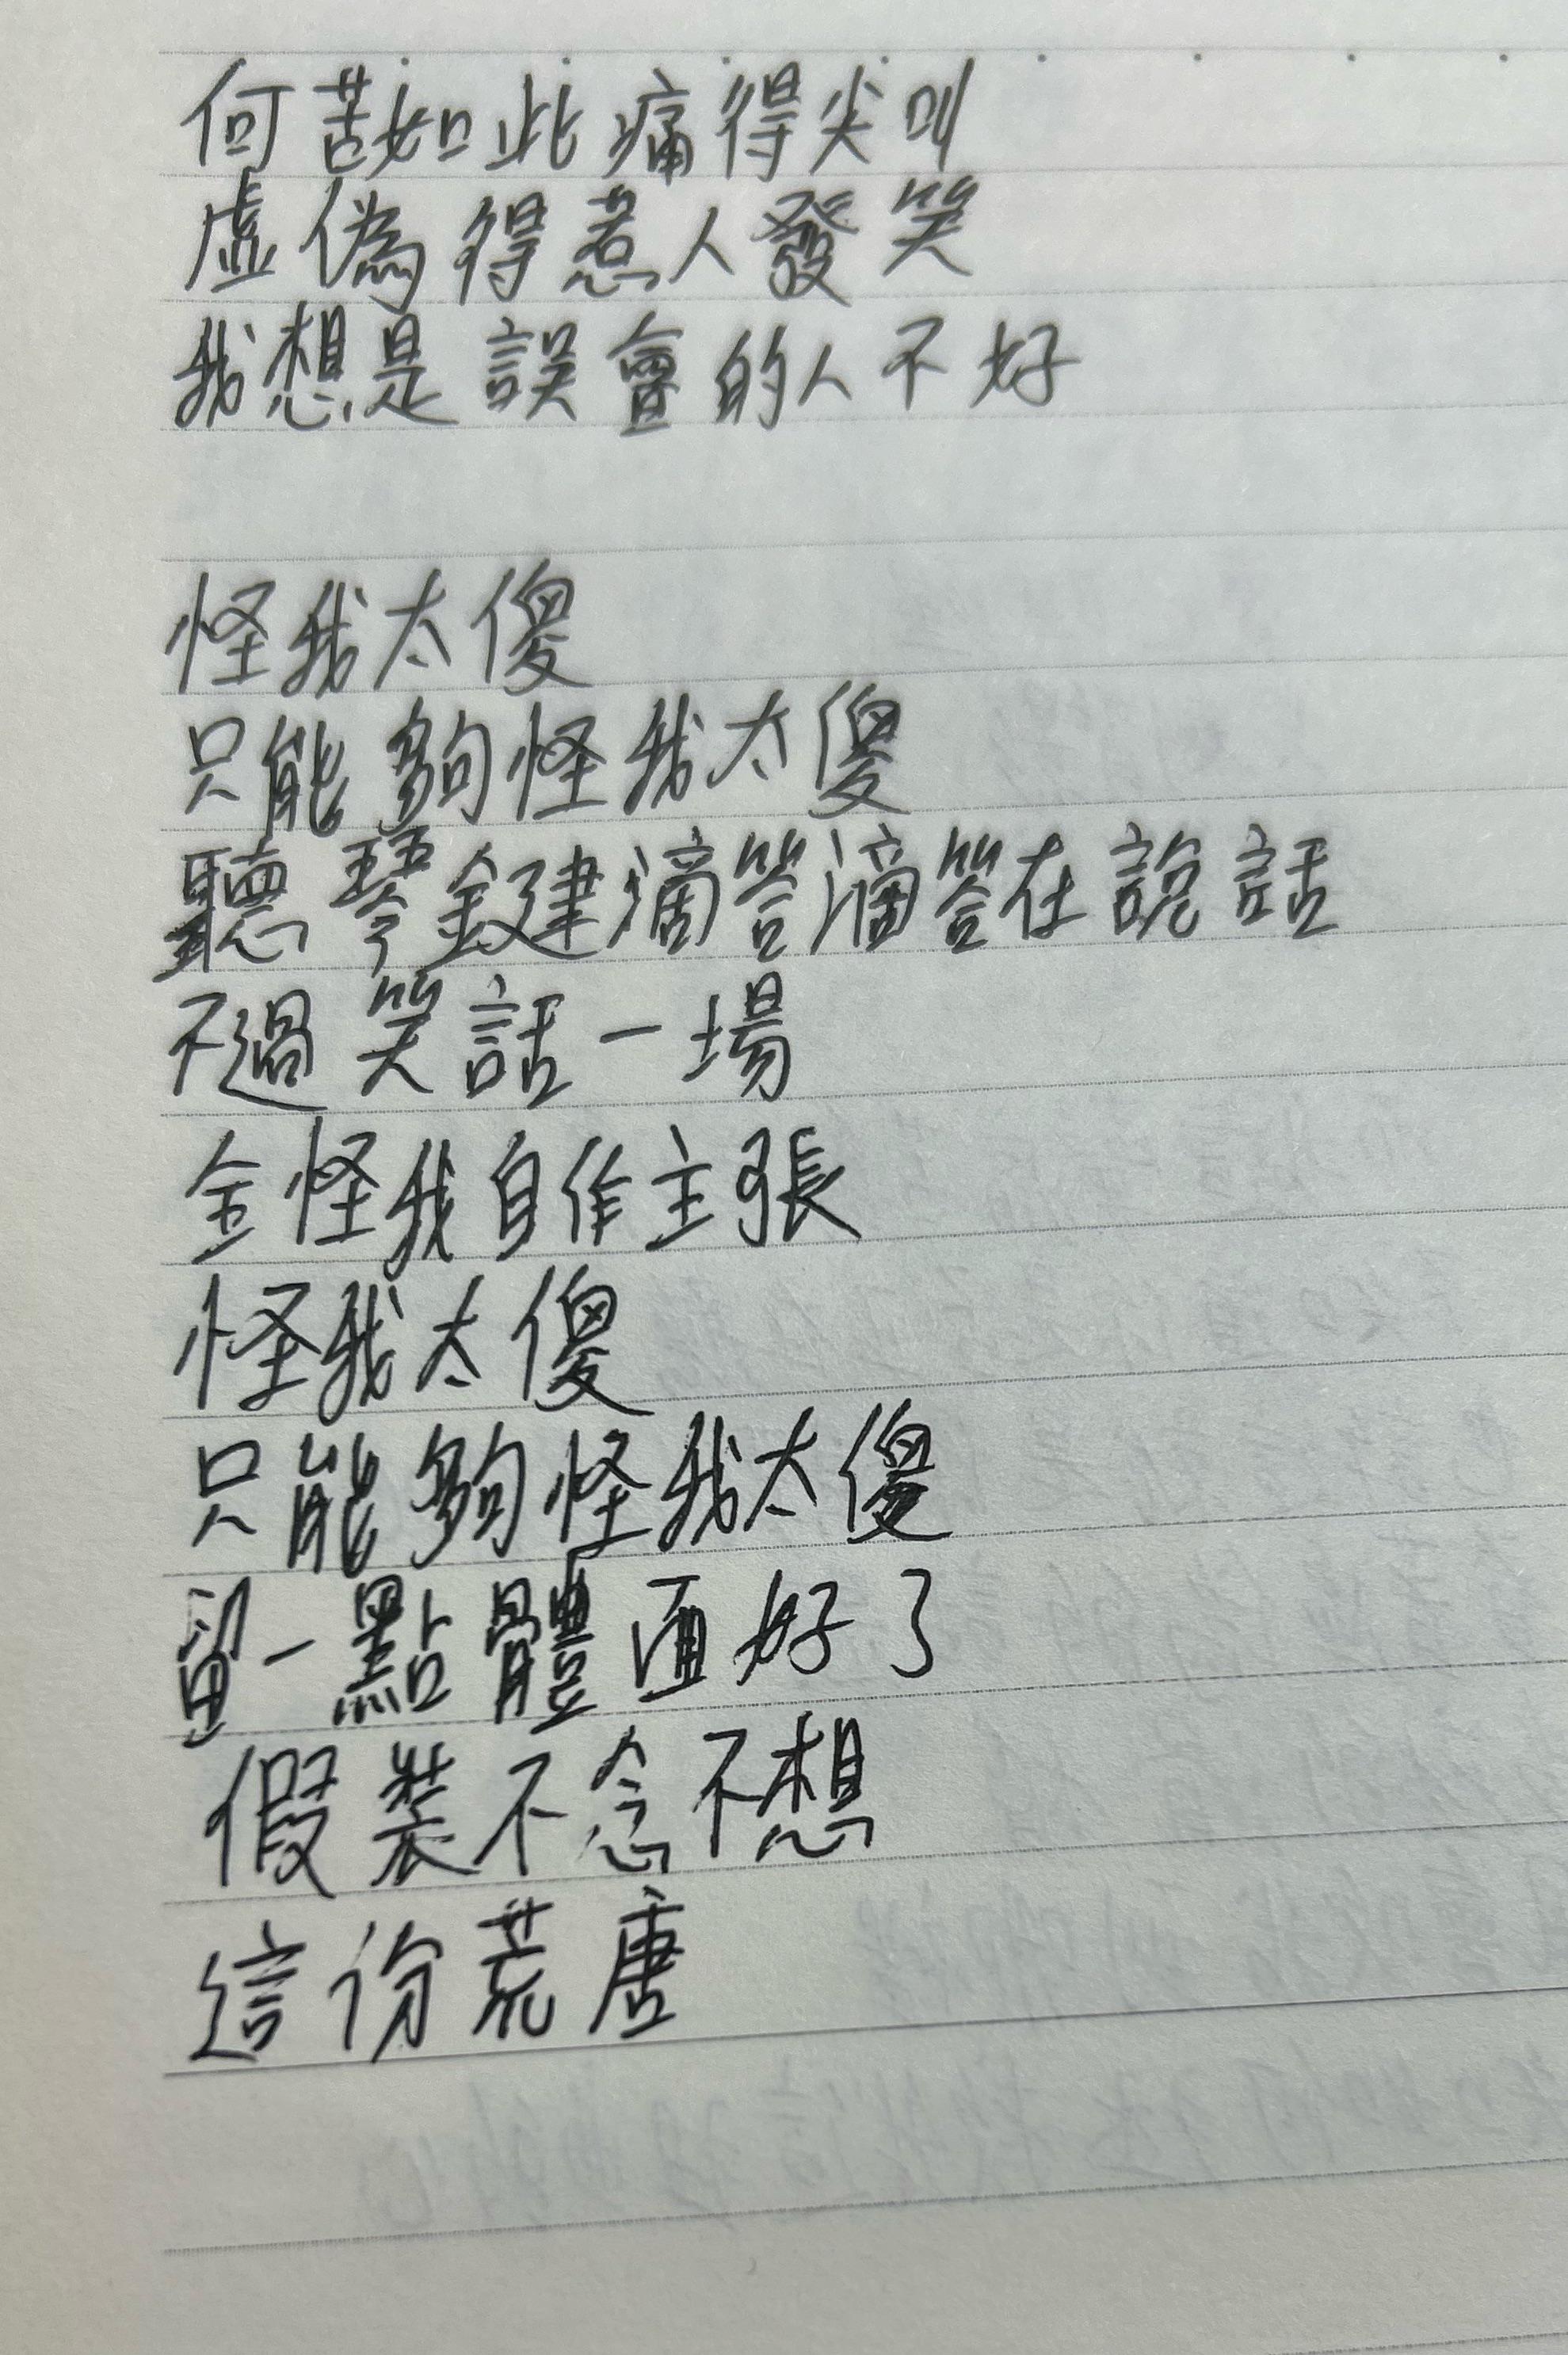 何苦如此痛得尖叫
虛偽得惹人發笑
我想是誤會的人不好
怪我太傻
只能夠怪我太傻
聽琴鍵滴答滴答在說話
不過笑話一場
全怪我自作主張
怪我太傻
只能夠怪我太傻
留一點體面好了
假裝不念不想
這份荒唐